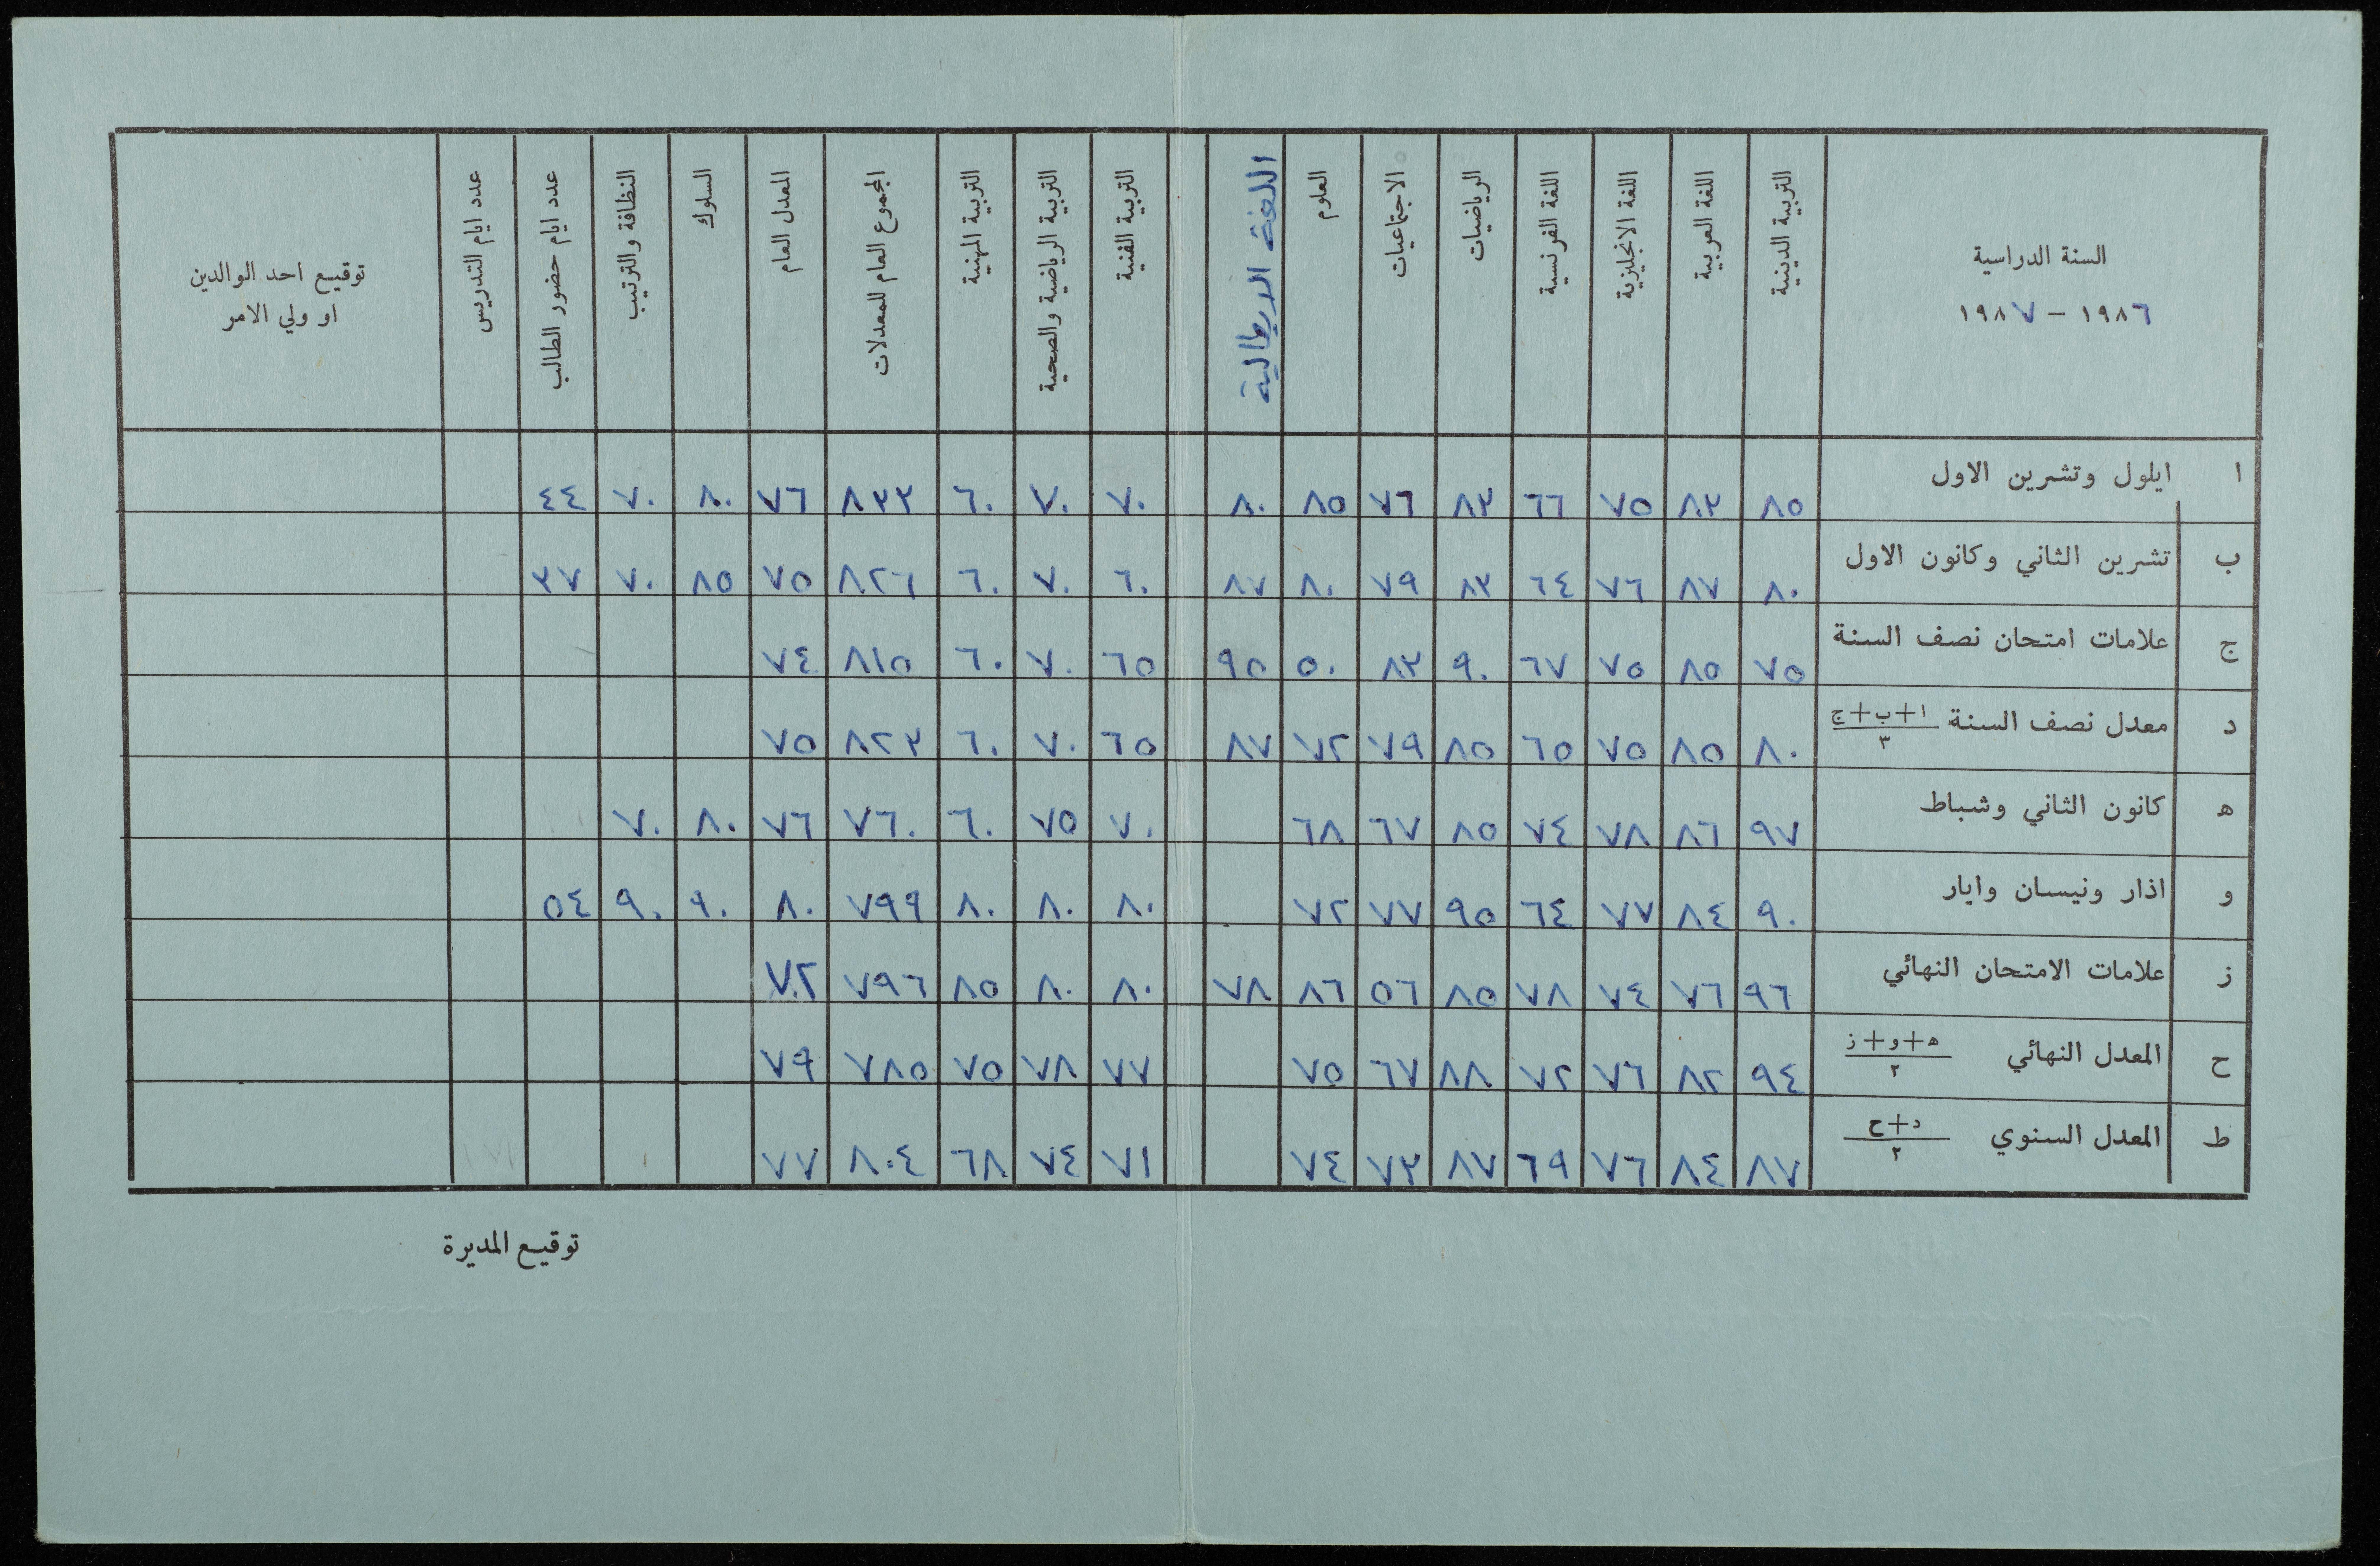 السنة الدراسية
١٩٨٦ - ١٩٨٧
التربية الدينية
اللغة العربية
اللغة الانجليزية
اللغة الفرنسية
الرياضيات
الاجتماعيات
العلوم
اللغة الايطالية
التربية الفنية
التربية الرياضية والصحية
التربية المهنية
المجموع العام للمعدلات
المعدل العام
السلوك
النظافة والترتيب
عدد ايام حضور الطالب
عدد ايام التدريس
توقيع احد الوالدين
او ولي الامر
ا ايلول وتشرين الاول ٨٥ ٨٣ ٧٥ ٦٦ ٨٣ ٧٦ ٨٥ ٨٠ ٧٠ ٧٠ ٦٠ ٨٣٣ ٧٦ ٨٠ ٧٠ ٤٤
ب تشرين الثاني وكانون الاول ٨٠ ٨٧ ٧٦ ٦٤ ٨٣ ٧٩ ٨٠ ٨٧ ٦٠ ٧٠ ٦٠ ٨٢٦ ٧٥ ٨٥ ٧٠ ٣٧
ج علامات امتحان نصف السنة ٧٥ ٨٥ ٧٥ ٦٧ ٩٠ ٨٣ ٥٠ ٩٥ ٦٥ ٧٠ ٦٠ ٨١٥ ٧٤
د معدل نصف السنة ا+ب+ج / ٣ ٨٠ ٨٥ ٧٥ ٦٥ ٨٥ ٧٩ ٧٢ ٨٧ ٦٥ ٧٠ ٦٠ ٨٢٣ ٧٥
ه كانون الثاني وشباط ٩٧ ٨٦ ٧٨ ٧٤ ٨٥ ٦٧ ٦٨ ٧٠ ٧٥ ٦٠ ٧٦٠ ٧٦ ٨٠ ٧٠
و اذار ونيسان وايار ٩٠ ٨٤ ٧٧ ٦٤ ٩٥ ٧٧ ٧٢ ٨٠ ٨٠ ٨٠ ٧٩٩ ٨٠ ٩٠ ٩٠ ٥٤
ز علامات الامتحان النهائي ٩٦ ٧٦ ٧٤ ٧٨ ٨٥ ٥٦ ٨٦ ٧٨ ٨٠ ٨٠ ٨٥ ٧٩٦ ٧٢
ح المعدل النهائي ه+و+ز / ٣ ٩٤ ٨٢ ٧٦ ٧٢ ٨٨ ٦٧ ٧٥ ٧٧ ٧٨ ٧٥ ٧٨٥ ٧٩
ط المعدل السنوي د+ح / ٢ ٨٧ ٨٤ ٧٦ ٦٩ ٨٧ ٧٣ ٧٤ ٧١ ٧٤ ٦٨ ٨٠٤ ٧٧
توقيع المديرة